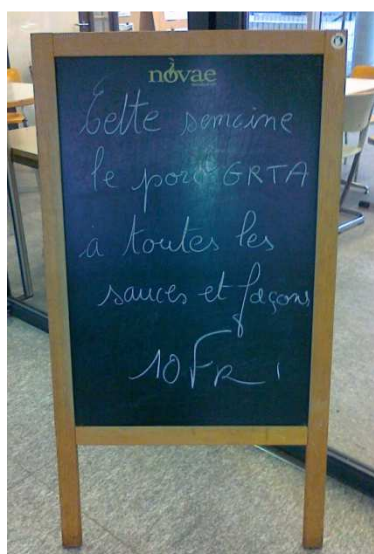 novae
Cette semaine
le porc GRTA
à toutes les
sauces et façons
10 FR.